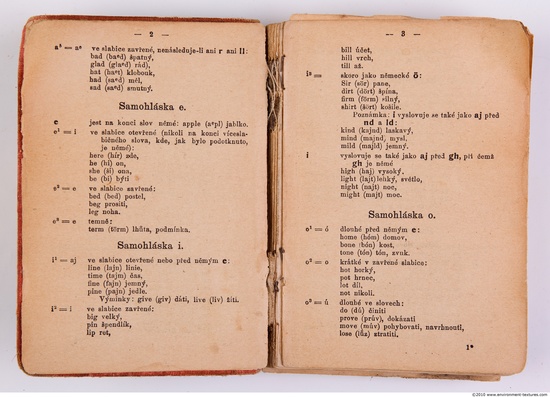 — 2 —
a³ = aᵉ ve slabice zavřené, nenásleduje-li ani r ani ll:
bad (baᵉd) špatný,
glad (glaᵉd) rád,
hat (haᵉt) klobouk,
had (saᵉd) měl,
sad (saᵉd) smutný.
Samohláska e.
e jest na konci slov němé: apple (aᵉpl) jablko.
e¹ = i ve slabice otevřené (nikoli na konci víceslabičného
slova, kde, jak bylo podotknuto,
je němé):
here (hír) zde,
he (hí) on,
she (ší) ona,
be (bí) býti
e² = e ve slabice zavřené:
bed (bed) postel,
beg prositi,
leg noha.
e³ = e temně:
term (törm) lhůta, podmínka.
Samohláska i.
i¹ = aj ve slabice otevřené nebo před němým e:
line (lajn) linie,
time (tajm) čas,
fine (fajn) jemný,
pine (pajn) jedle.
Výminky: give (giv) dáti, live (liv) žíti.
i² = i ve slabice zavřené:
big velký,
pin špendlík,
lip ret,
— 3 —
bill účet,
hill vrch,
till až.
i³ = skoro jako německé ö:
Sir (sör) pane,
dirt (dört) špína,
firm (förm) silný,
shirt (šört) košile.
Poznámka: i vyslovuje se také jako aj před
nd a ld:
kind (kajnd) laskavý,
mind (majnd) mysl,
mild (majld) jemný.
i vyslovuje se také jako aj před gh, při čemž
gh je němé
high (haj) vysoký,
light (lajt) lehký, světlo,
night (najt) noc,
might (majt) moc.
Samohláska o.
o¹ = ó dlouhé před němým e:
home (hóm) domov,
bone (bón) kost,
tone (tón) tón, zvuk.
o² = o krátké v zavřené slabice:
hot horký,
pot hrnec,
lot díl,
not nikoli.
o³ = ú dlouhé ve slovech:
do (dú) činiti
prove (prúv), dokázati
move (múv) pohybovati, navrhnouti,
lose (lúz) ztratiti.
1*
©2010 www.environment-textures.com